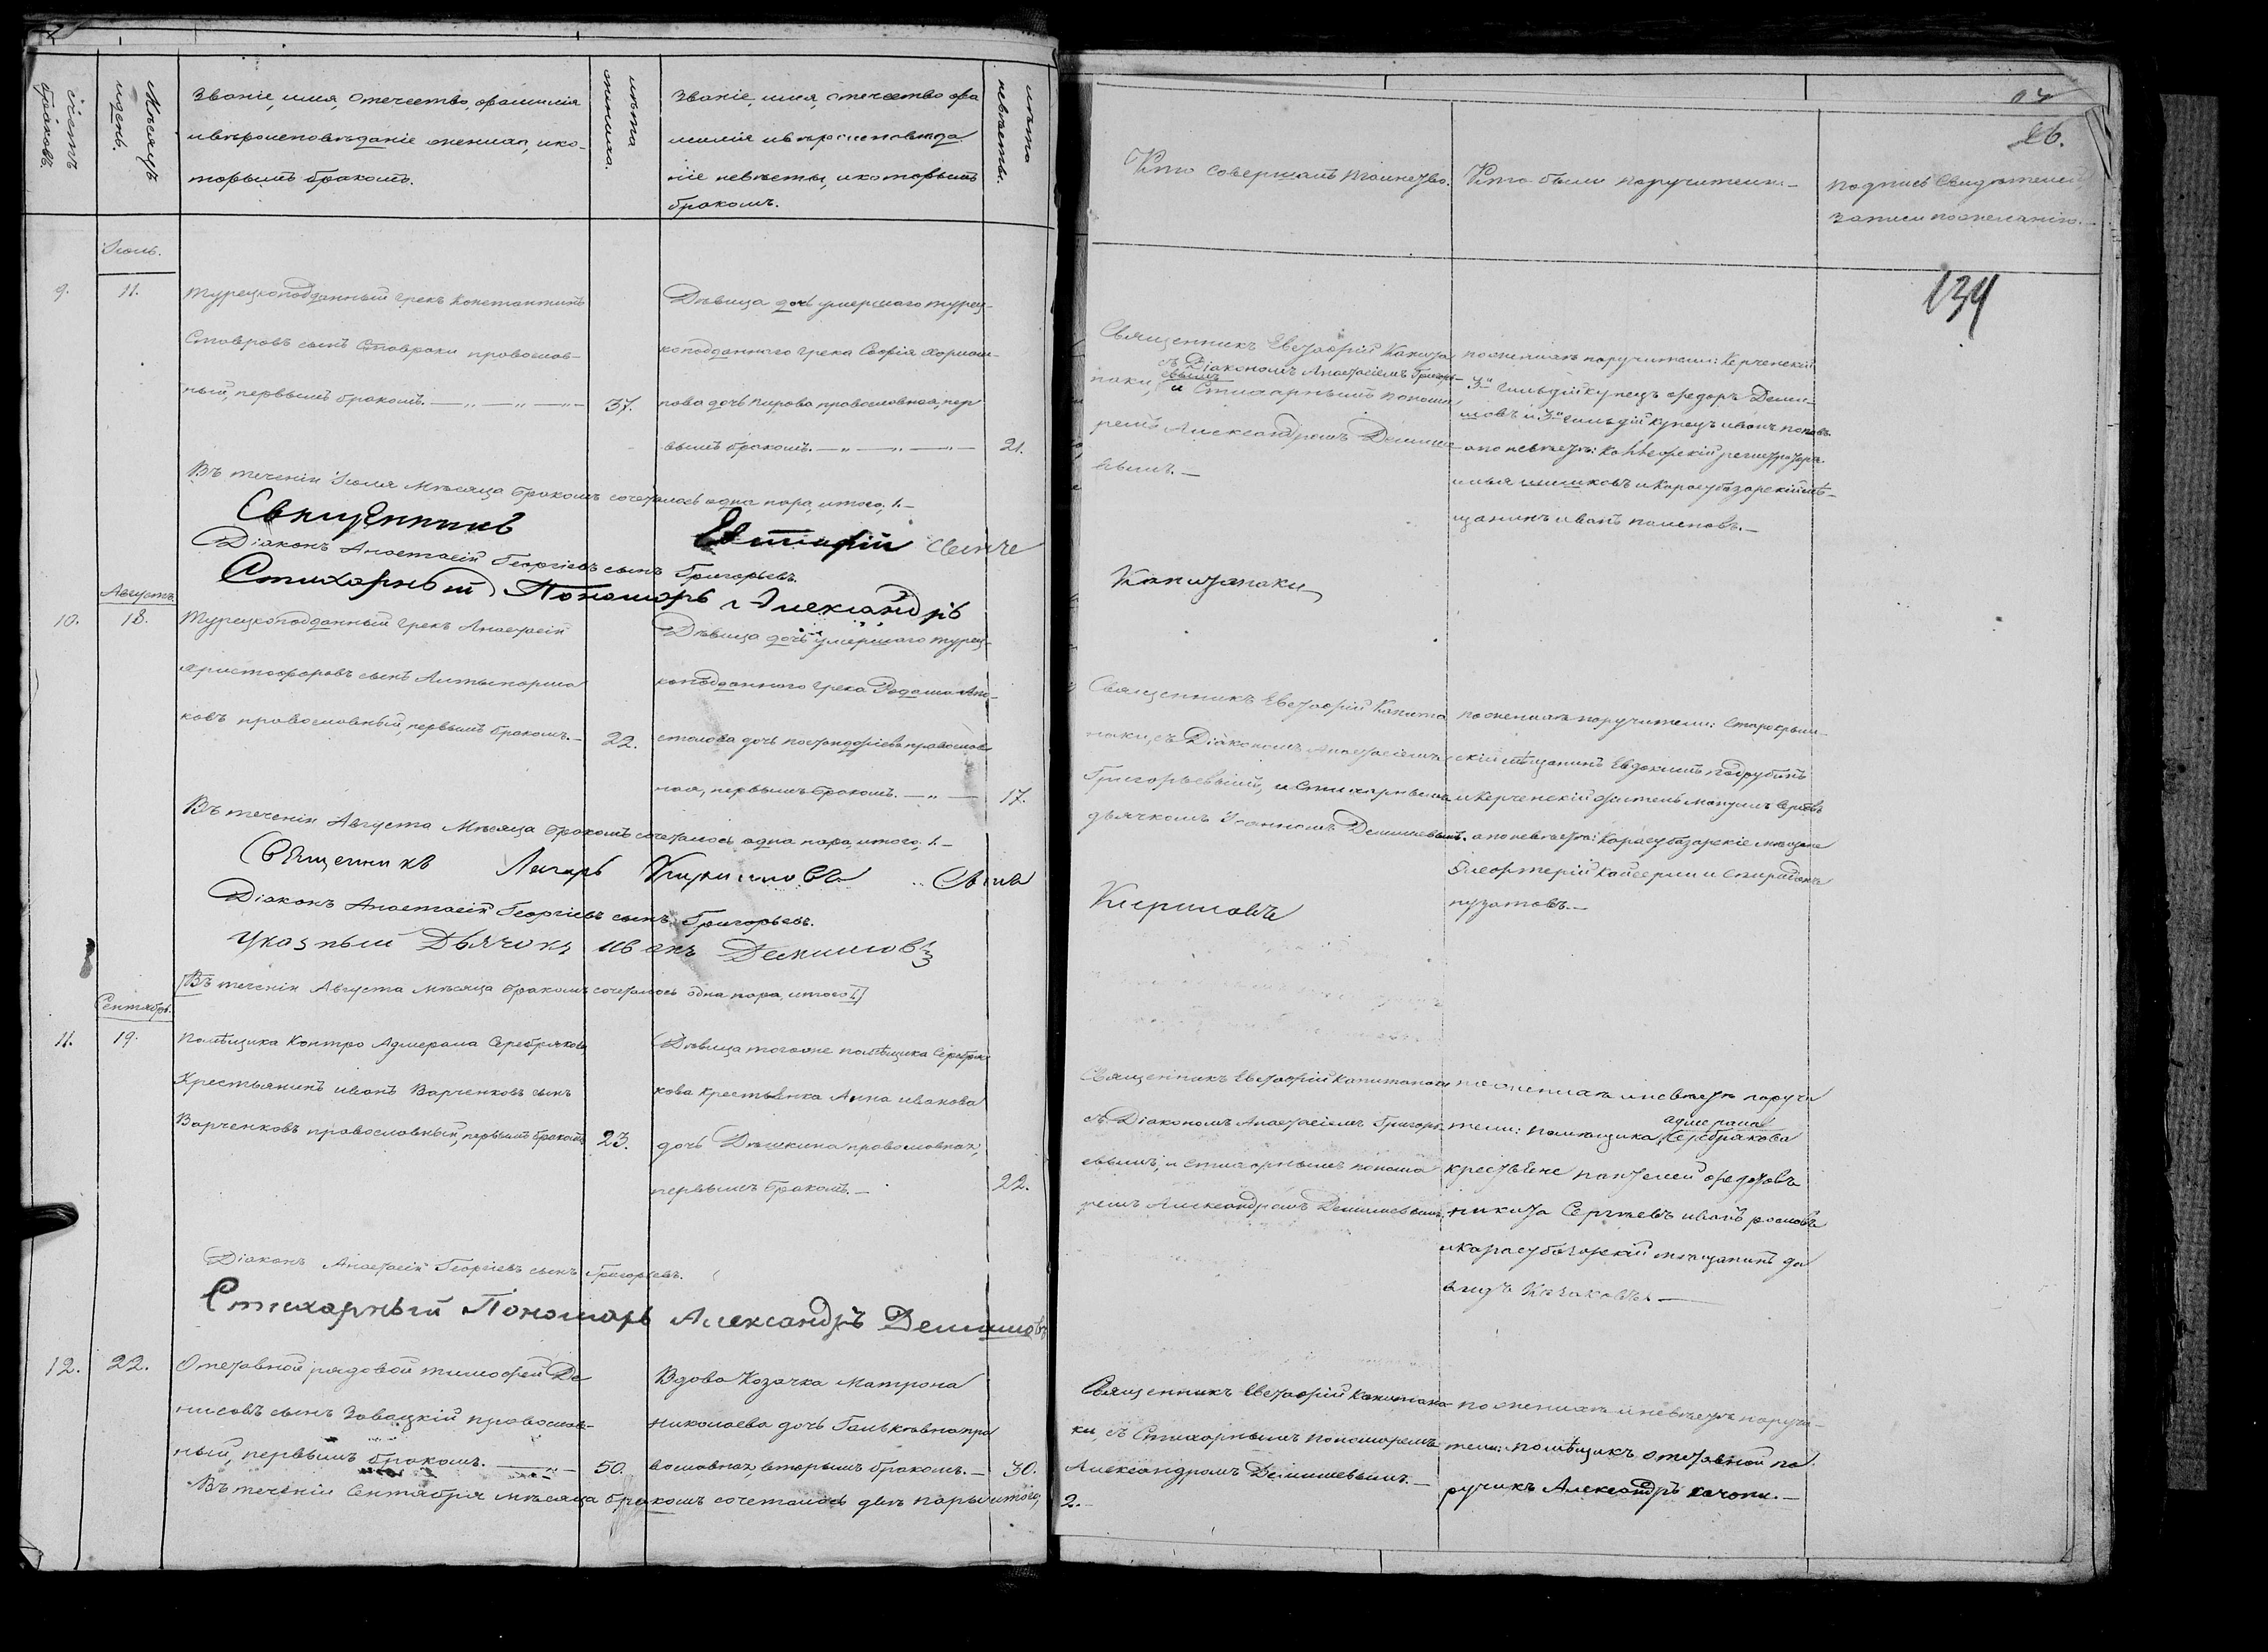 Счетъ браковъ.
Мѣсяцъ и день.
Званіе, имя, отечество, фамилія
и вѣроисповѣданіе жениха, и ко-
торымъ бракомъ.
лѣта жениха.
Званіе, имя, отечество фа
милія и вѣроисповѣда
ніе невѣсты, и которымъ
бракомъ.
лѣта невѣсты.
Іюль.
9.
11.
Турецкоподданный грекъ Константинъ
Ставровъ сынъ Ставраки православ-
ный, первымъ бракомъ. —„— —„— —„—
37.
Дѣвица дочь умершаго турец-
коподданнаго грека Софія
дочь Кирова православная, пер
вымъ бракомъ. —„— —„— —
21.
Въ теченіи Іюля мѣсяца бракомъ сочеталось одна пара, итого, 1.—
Священникъ Евстафій
Діаконъ Анастасій Георгіевъ сынъ Григорьевъ.
Стихарный Пономарь Александръ
Августъ.
10.
18.
Турецкоподданный грекъ Анастасій
Христофоровъ сынъ
ковъ православный, первымъ бракомъ.—
22.
Дѣвица дочь умершаго турец-
коподданнаго грека
дочь православ
ная, первымъ бракомъ. —„—
17.
Въ теченіи Августа мѣсяца бракомъ сочеталось одна пара, итого, 1.—
Священникъ Лазарь Кириловъ
Діаконъ Анастасій Георгіевъ сынъ Григорьевъ.
Указный Дьячокъ Иванъ
[Въ теченіи Августа мѣсяца бракомъ сочеталось одна пара, итого 1.]
Сентябрь.
11.
19.
Помѣщика Контро Адмерала Серебрякова
Крестьянинъ Иванъ Варченковъ сынъ
Варченковъ православный, первымъ бракомъ
23.
Дѣвица тогоже помѣщика Серебря
кова крестьянка Анна Иванова
дочь Дѣшкина православная,
первымъ бракомъ.—
22.
Діаконъ Анастасій Георгіевъ сынъ Григорьевъ.
Стихарный Пономарь Александръ Демишевъ
12.
22.
Отставной рядовой Тимофей Де
нисовъ сынъ Завацкій православ-
ный, первымъ бракомъ. —„—
50.
Вдова Козачка Матрона
Николаева дочь пра
вославная, вторымъ бракомъ.—
30.
Въ теченіи Сентября мѣсяца бракомъ сочеталось двѣ пары итого,
26.
Кто совершалъ таинство.
Кто были поручители—
Подпись свидѣтелей
записи пожеланію.—
134
Священникъ Евстафій Капита
съ Діакономъ Анастасіемъ Григорь-
евымъ
наки, и Стихарнымъ понома
ремъ Александромъ Демише
вымъ.—
по женихѣ поручители: Керченскій
3й гильдіи купецъ Федоръ
и 3й гильдіи купецъ Иванъ Поповъ
а по невѣстѣ: регистраторъ
Илья Шишковъ и Карасубазарскій мѣ-
щанинъ Иванъ
Капитанаки
Священникъ Евстафій Капита
наки, съ Діакономъ Анастасіемъ
Григорьевымъ, и Стихарнымъ
дьячкомъ Іоанномъ Демишевымъ.
по женихѣ поручители: Старокрым-
скій мѣщанинъ Евдокимъ
и Керченскій житель
а по невѣстѣ: Карасубазарскіе мѣщане
и Спиридонъ
пузатовъ.—
Кириловъ
Священникъ Евстафій Капитанаки
съ Діакономъ Анастасіемъ Григорь-
евымъ, и стихарнымъ понома
ремъ Александромъ Демишевымъ.
по женихѣ и невѣстѣ поручи
адмерала
тели: помѣщика Серебрякова
крестьяне Пантелей Федотовъ
Никита Сергѣевъ Иванъ
и Карасубазарскій мѣщанинъ Да
видъ Казаковъ.—
Священникъ Евстафій Капитана
ки, съ Стихарнымъ пономаремъ
Александромъ Демишевымъ.—
2.—
по женихѣ и невѣстѣ поручи-
тели: помѣщикъ отставной по
ручикъ Александръ Качони.—